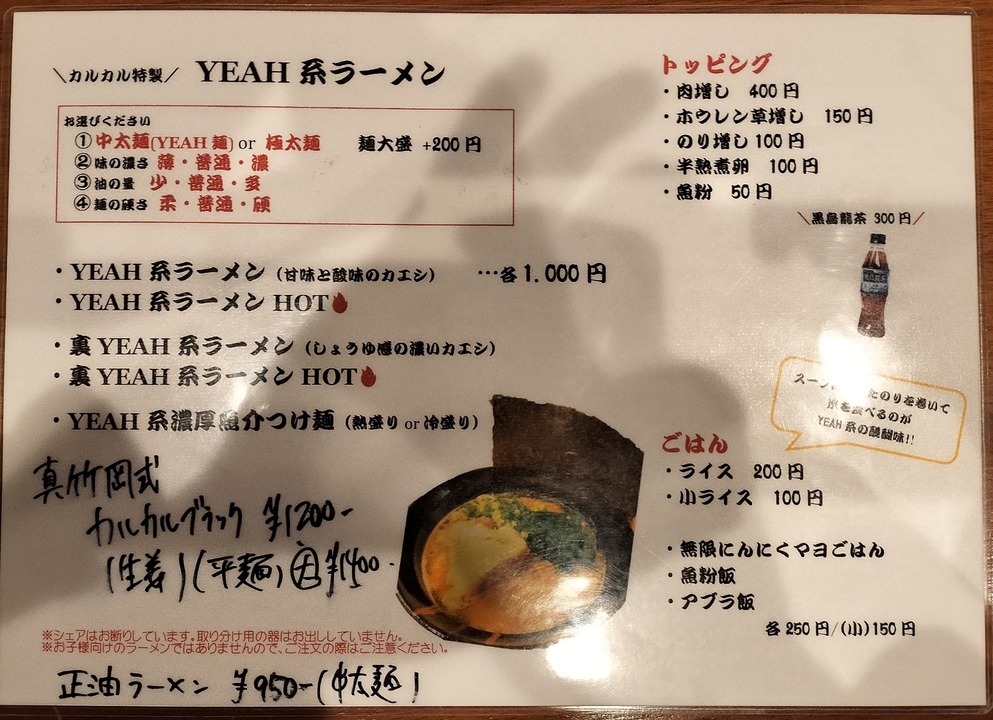 ＼カルカル特製／ YEAH 系ラーメン
お選びください
①中太麺(YEAH 麺) or 極太麺 麺大盛 +200 円
②味の濃さ 薄・普通・濃
③油の量 少・普通・多
④麺の硬さ 柔・普通・硬
・YEAH 系ラーメン（甘味と酸味のカエシ） …各 1.000 円
・YEAH 系ラーメン HOT
・裏 YEAH 系ラーメン（しょうゆ感の濃いカエシ）
・裏 YEAH 系ラーメン HOT
・YEAH 系濃厚魚介つけ麺（熱盛り or 冷盛り）
真竹岡式
カルカルブラック ¥1200-
(生姜)(平麺) 大 ¥1400-
※シェアはお断りしています。取り分け用の器はお出ししていません。
※お子様向けのラーメンではありませんので、ご注文の際はご注意ください。
正油ラーメン ¥950-(中太麺)
トッピング
・肉増し 400 円
・ホウレン草増し 150 円
・のり増し 100 円
・半熟煮卵 100 円
・魚粉 50 円
＼黒烏龍茶 300 円／
スープに たのりを巻いて
米を食べるのが
YEAH 系の醍醐味!!
ごはん
・ライス 200 円
・小ライス 100 円
・無限にんにくマヨごはん
・魚粉飯
・アブラ飯
各 250 円/(小)150 円